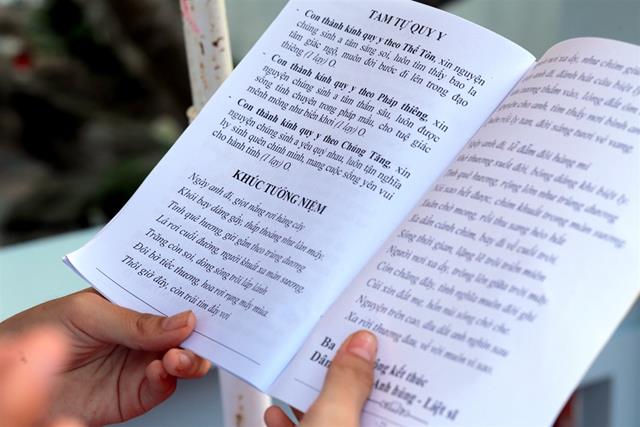 TAM TỰ QUY Y
- Con thành kính quy y theo Thế Tôn, xin nguyện
chúng sinh a tâm sáng soi, luôn tìm thấy bao la
tâm giác ngộ, muôn đời bước đi lên trong đạo
thiêng (1 lạy) O.
- Con thành kính quy y theo Pháp thiêng, xin
nguyện chúng sinh a tâm thẳm sâu, luôn được
sống tinh chuyên trong pháp mầu, cho tuệ giác
mênh mông như biển khơi (1 lạy) O.
- Con thành kính quy y theo Chúng Tăng, xin
nguyện chúng sinh a yêu quý nhau, luôn tận nghĩa
hy sinh quên chính mình, mang cuộc sống yên vui
cho hành tinh (1 lạy) O.
KHÚC TƯỞNG NIỆM
Ngày anh đi, giọt nắng rơi hàng cây
Khói bay dáng gầy, thấp thoáng như làn mây.
Tình quê hương, gửi gắm theo trùng dương
Lá rơi cuối đường, người khuất xa màn sương.
Trăng còn soi, dòng sông trôi lấp lánh
Đôi bờ tiếc thương, hoa rơi rụng mấy mùa.
Thôi giờ đây, còn trái tim đầy vơi
như chim gió
anh đi, đánh
anh đi, lễ đẫm đôi hàng mi
Tình quê hương, rộng lớn như trùng dương
Xuân chờ mong, rét thu sang héo hắt
Xa đàn cánh chim, bay đi về cuối trời.
Sông thời gian, lặng lẽ trôi triền miên
Người nơi xa ấy, trông lên giữa trời mây.
Còn chăng đây, tình nghĩa muôn đời ghi
Cúi xin đất mẹ, hồn núi sông chở che.
Nguyện trên cao, dìu dắt anh nghìn sau
Xa rời thương đau, về với muôn vì sao.
Ba
kết thúc
Anh hùng - Liệt sĩ